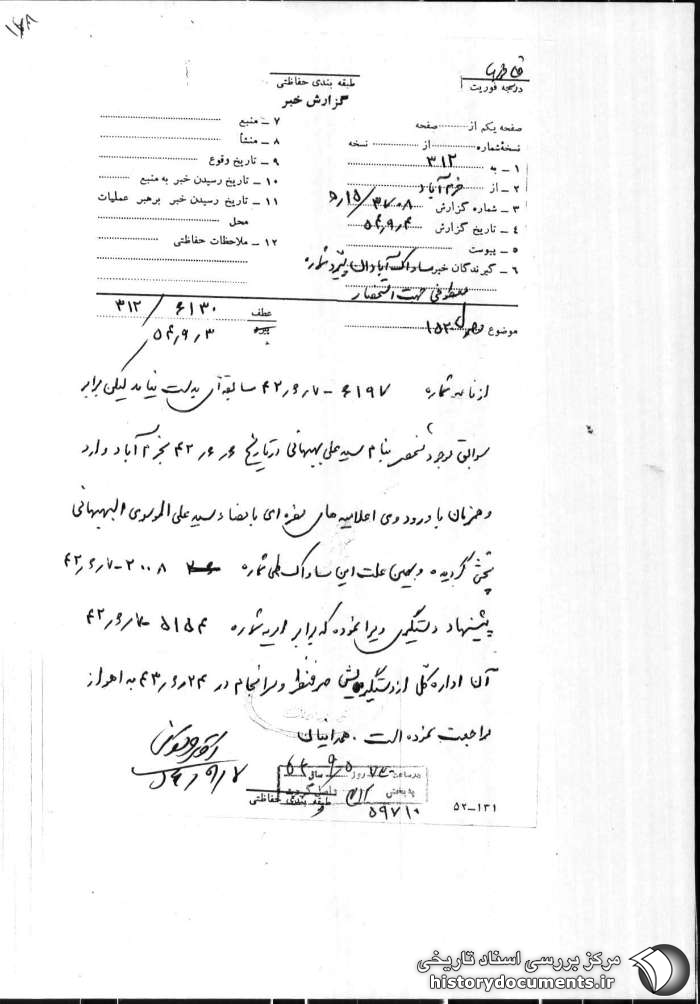 ۱۴۸
درجه فوریت
طبقه بندی حفاظتی
گزارش خبر
صفحه یکم از صفحه
نسخهٔ شماره از نسخه
۱ ـ به ۳۱۲
۲ ـ از خرم‌آباد
۳ ـ شماره گزارش ۳۷۰۸/۱۵ه
۴ ـ تاریخ گزارش ۵۴٫۹٫۴
۵ ـ پیوست
۶ ـ گیرندگان خبر ساواک آبادان
جهت استحضار
۷ ـ منبع
۸ ـ منشأ
۹ ـ تاریخ وقوع
۱۰ ـ تاریخ رسیدن خبر به منبع
۱۱ ـ تاریخ رسیدن خبر برهبر عملیات
محل
۱۲ ـ ملاحظات حفاظتی
موضوع
عطف ۶۱۳۰ / ۳۱۲
پیرو ۵۴٫۹٫۳
از نامه شماره ۶۱۹۷ - ۴۲٫۶٫۷ سابقه‌ای بدست نیامد لیکن برابر
سوابق موجود شخصی بنام سید علی بهبهانی در تاریخ ۴۲٫۶٫۶ بخرم آباد وارد
و همزمان با ورود وی اعلامیه های مضره ای با مضاء سید علی الموسوی البهبهانی
پخش گردیده و بهمین علت این ساواک طی شماره ۲۰۰۸ - ۴۲٫۶٫۷
پیشنهاد دستگیری ویرا نموده که برابر امریه شماره ۵۱۵۴ - ۴۲٫۶٫۷
آن اداره کل از دستگیریش صرفنظر و سرانجام در ۴۳٫۶٫۲۴ به اهواز
مراجعت نموده است. همدانیان
۵۴٫۹٫۷
در ساعت روز ۵ ۹ سال ۵۴
به بخش ۳۱۲
طبقه بندی حفاظتی
۵۹۷۱۰
۵۲ـ۱۳۱
مرکز بررسی اسناد تاریخی
historydocuments.ir